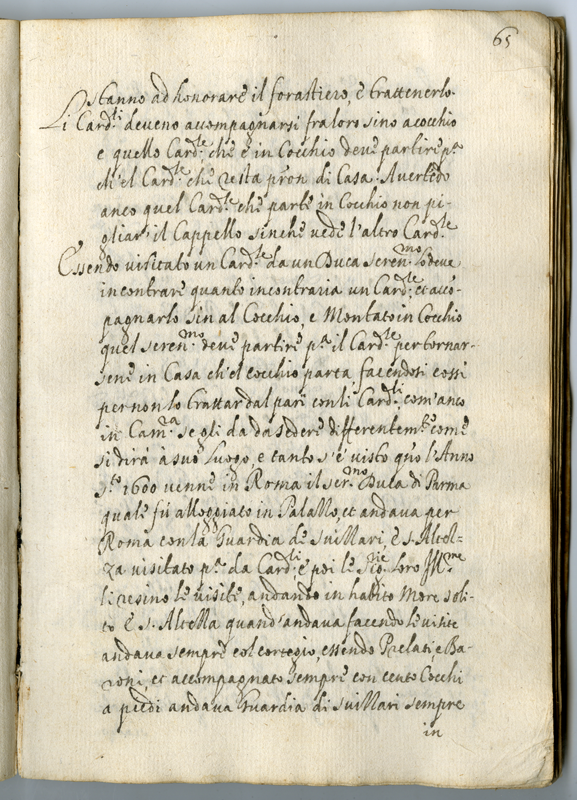 65
stanno ad honorare il forastiero, e trattenerlo.
Li Card.li deveno accompagnarsi fra loro sino a cocchio
e quello Card.le che è in Cocchio deve partire p.a
ch'el Card.le che resta pron di Casa. Avertēdo
anco quel Card.le che parte in Cocchio non pi-
gliar' il Cappello sinche vede l'altro Card.le
Essendo visitato un Card.le da un Duca Seren.mo lo deve
incontrare quanto incontraria un Card.le, et acco-
pagnarlo sin al Cocchio, e Montato in Cocchio
quel seren.mo deve partire p.a il Card.le per tornar-
sene in Casa ch'el cocchio parta facendosi cossi
per non lo trattar dal pari con li Card.li, com'anco
in Cam.a se gli da da sedere differentem.te come
si dirà à suo luogo, e tanto s'è visto qñ l'Anno
s.to 1600 venne in Roma il ser.mo Duca di Parma
quale fù alloggiato in Palazzo, et andava per
Roma con la Guardia de suizzari, e s. Altez-
za visitato p.a da Card.li, e poi le Sig.rie loro Ill.me
li resino le visite, andando in habito More soli-
to e s. Altezza quand'andava facendo le visite
andava sempre col corteggio, essendo Prelati e Ba-
roni, et accompagnato sempre con cento Cocchi
a piedi andava Guardia di suizzari sempre
in